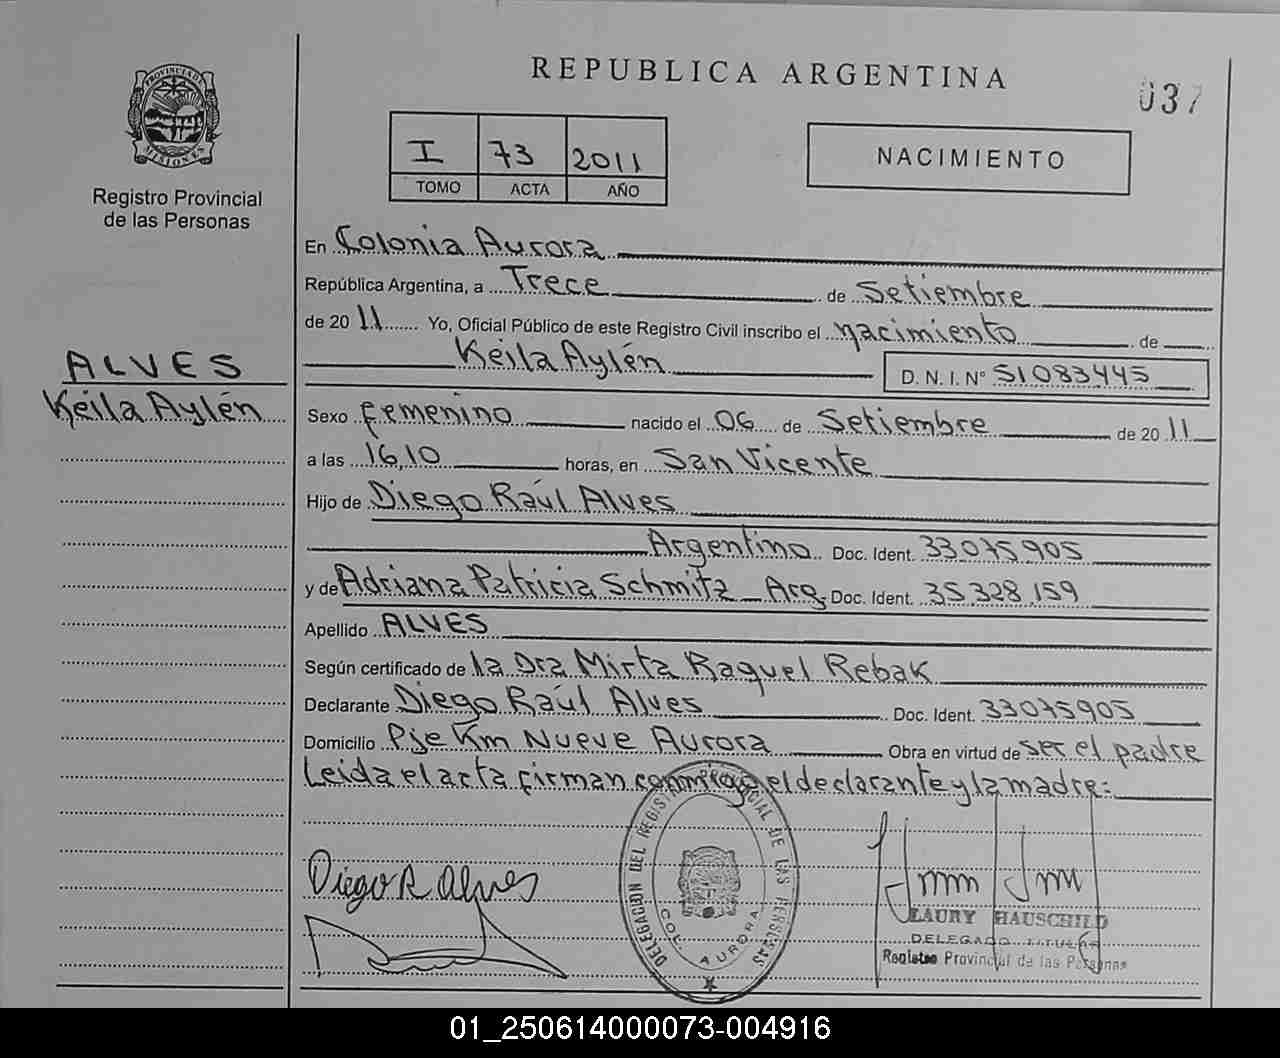 REPUBLICA ARGENTINA
037
PROVINCIA DE
MISIONES
Registro Provincial
de las Personas
I 73 2011
TOMO ACTA AÑO
NACIMIENTO
En Colonia Aurora
República Argentina, a Trece de Setiembre
de 2011 Yo, Oficial Público de este Registro Civil inscribo el nacimiento de
Keila Aylén
D. N. I. Nº 51083445
ALVES
Keila Aylén
Sexo femenino nacido el 06 de Setiembre de 2011
a las 16,10 horas, en San Vicente
Hijo de Diego Raúl Alves
Argentino Doc. Ident. 33075905
y de Adriana Patricia Schmitz Arg. Doc. Ident. 35.328.159
Apellido ALVES
Según certificado de la Dra Mirta Raquel Rebak
Declarante Diego Raúl Alves Doc. Ident. 33075905
Domicilio Pje Km Nueve Aurora Obra en virtud de ser el padre
Leída el acta firman conmigo el declarante y la madre:
Diego R Alves
DELEGACION DEL REGISTRO PROVINCIAL DE LAS PERSONAS
COL. AURORA
LAURY HAUSCHILD
DELEGADO TITULAR
Registro Provincial de las Personas
01_250614000073-004916